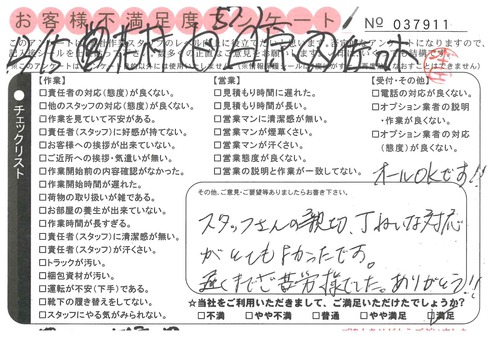 お客様不満足度アンケート
No 037911
チェックリスト
【作業】
□責任者の対応(態度)が良くない。
□他のスタッフの対応(態度)が良くない。
□作業を見ていて不安がある。
□責任者(スタッフ)に好感が持てない。
□お客様への挨拶が出来ていない。
□ご近所への挨拶・気遣いが無い。
□作業開始前の内容確認がなかった。
□作業開始時間が遅れた。
□荷物の取り扱いが雑である。
□お部屋の養生が出来ていない。
□作業時間が長すぎる。
□責任者(スタッフ)に清潔感が無い。
□責任者(スタッフ)が汗くさい。
□トラックが汚い。
□梱包資材が汚い。
□運転が不安(下手)である。
□靴下の履き替えをしてない。
□スタッフにやる気がみられない。
【営業】
□見積もり時間に遅れた。
□見積もり時間が長い。
□営業マンに清潔感が無い。
□営業マンが煙草くさい。
□営業マンが汗くさい。
□営業態度が良くない。
□営業の説明と作業が一致してない。
【受付・その他】
□電話の対応が良くない。
□オプション業者の説明・作業が良くない。
□オプション業者の対応(態度)が良くない。
オールOKです!!
その他、ご意見・ご要望等ありましたらお書き下さい。
スタッフさんの親切、丁ねいな対応
がとてもよかったです。
遅くまでご苦労様でした。ありがとう!!
☆当社をご利用いただきまして、ご満足いただけたでしょうか?
□不満 □やや不満 □普通 □やや満足 □満足